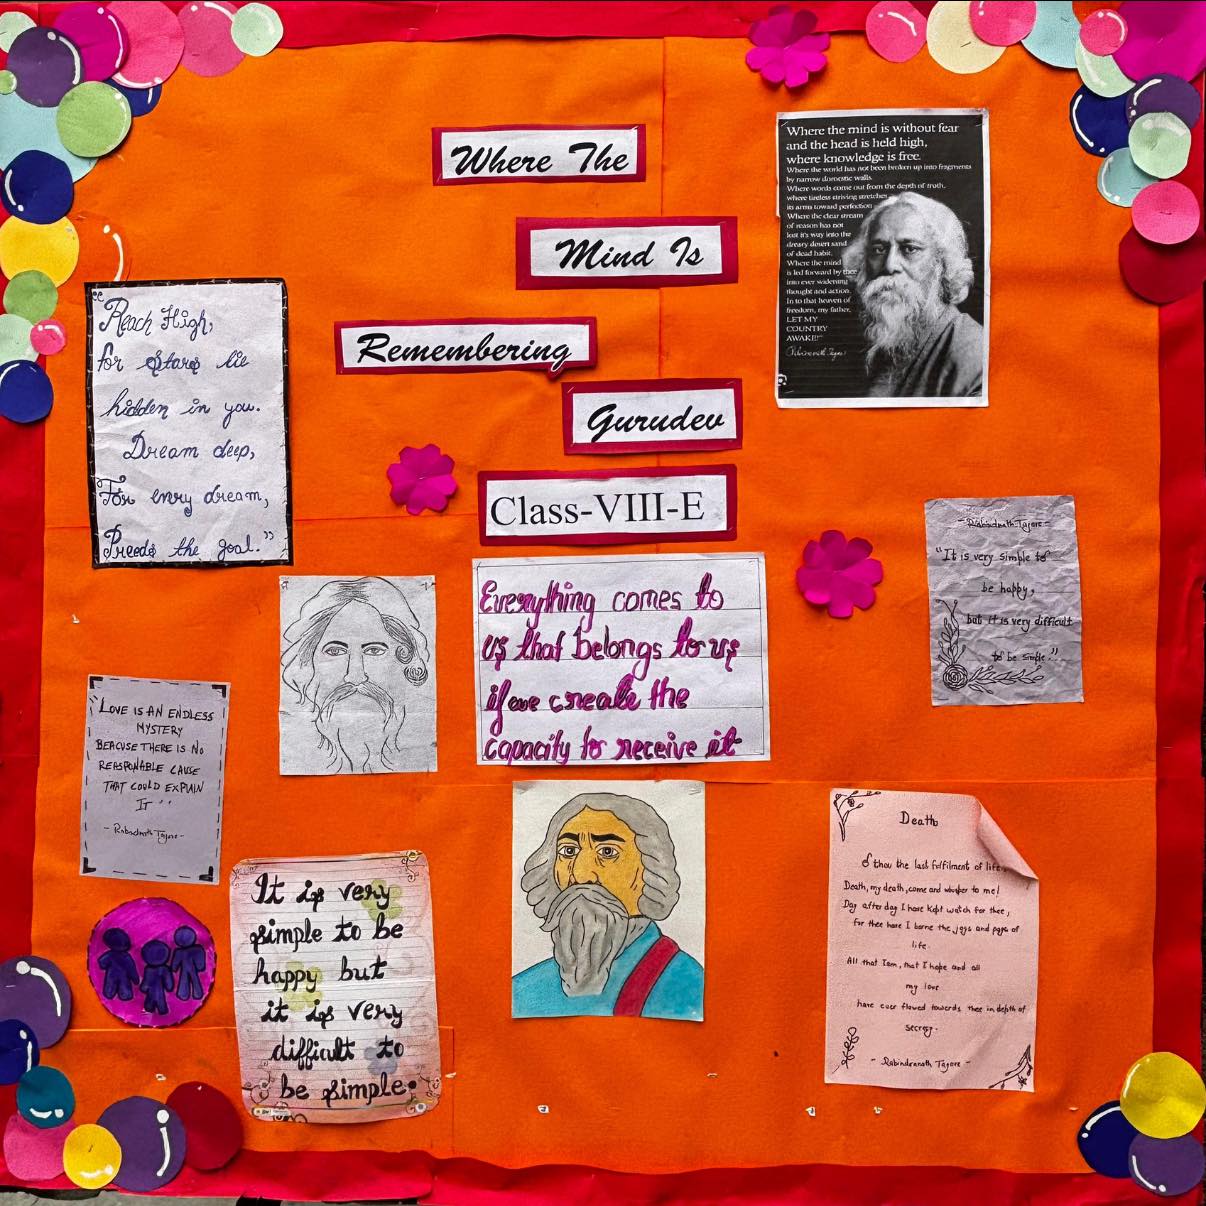 Where The
Mind Is
Remembering
Gurudev
Class-VIII-E
Where the mind is without fear
and the head is held high,
where knowledge is free.
Where the world has not been broken up into fragments
by narrow domestic walls.
Where words come out from the depth of truth,
where tireless striving stretches
its arms toward perfection
Where the clear stream
of reason has not
lost it's way into the
dreary desert sand
of dead habit.
Where the mind
is led forward by thee
into ever widening
thought and action.
In to that heaven of
freedom, my father,
LET MY
COUNTRY
AWAKE!"
Rabindranath Tagore
"Reach High,
for stars lie
hidden in you.
Dream deep,
For every dream,
Preeds the goal."
Everything comes to
us that belongs to us
if we create the
capacity to receive it
- Rabindnath Tagore -
"It is very simple to
be happy,
but it is very difficult
to be simple."
"LOVE IS AN ENDLESS
MYSTERY
BEACUSE THERE IS NO
REASPONABLE CAUSE
THAT COULD EXPLAIN
IT"
- Rabindnath Tagore -
It is very
simple to be
happy but
it is very
difficult to
be simple.
Death
O thou the last fulfilment of life,
Death, my death, come and whisper to me!
Day after day I have kept watch for thee,
for thee have I borne the joys and pags of
life.
All that I am, that I hope and all
my love
have ever flowed towards thee in depth of
secrecy.
- Rabindranath Tagore -